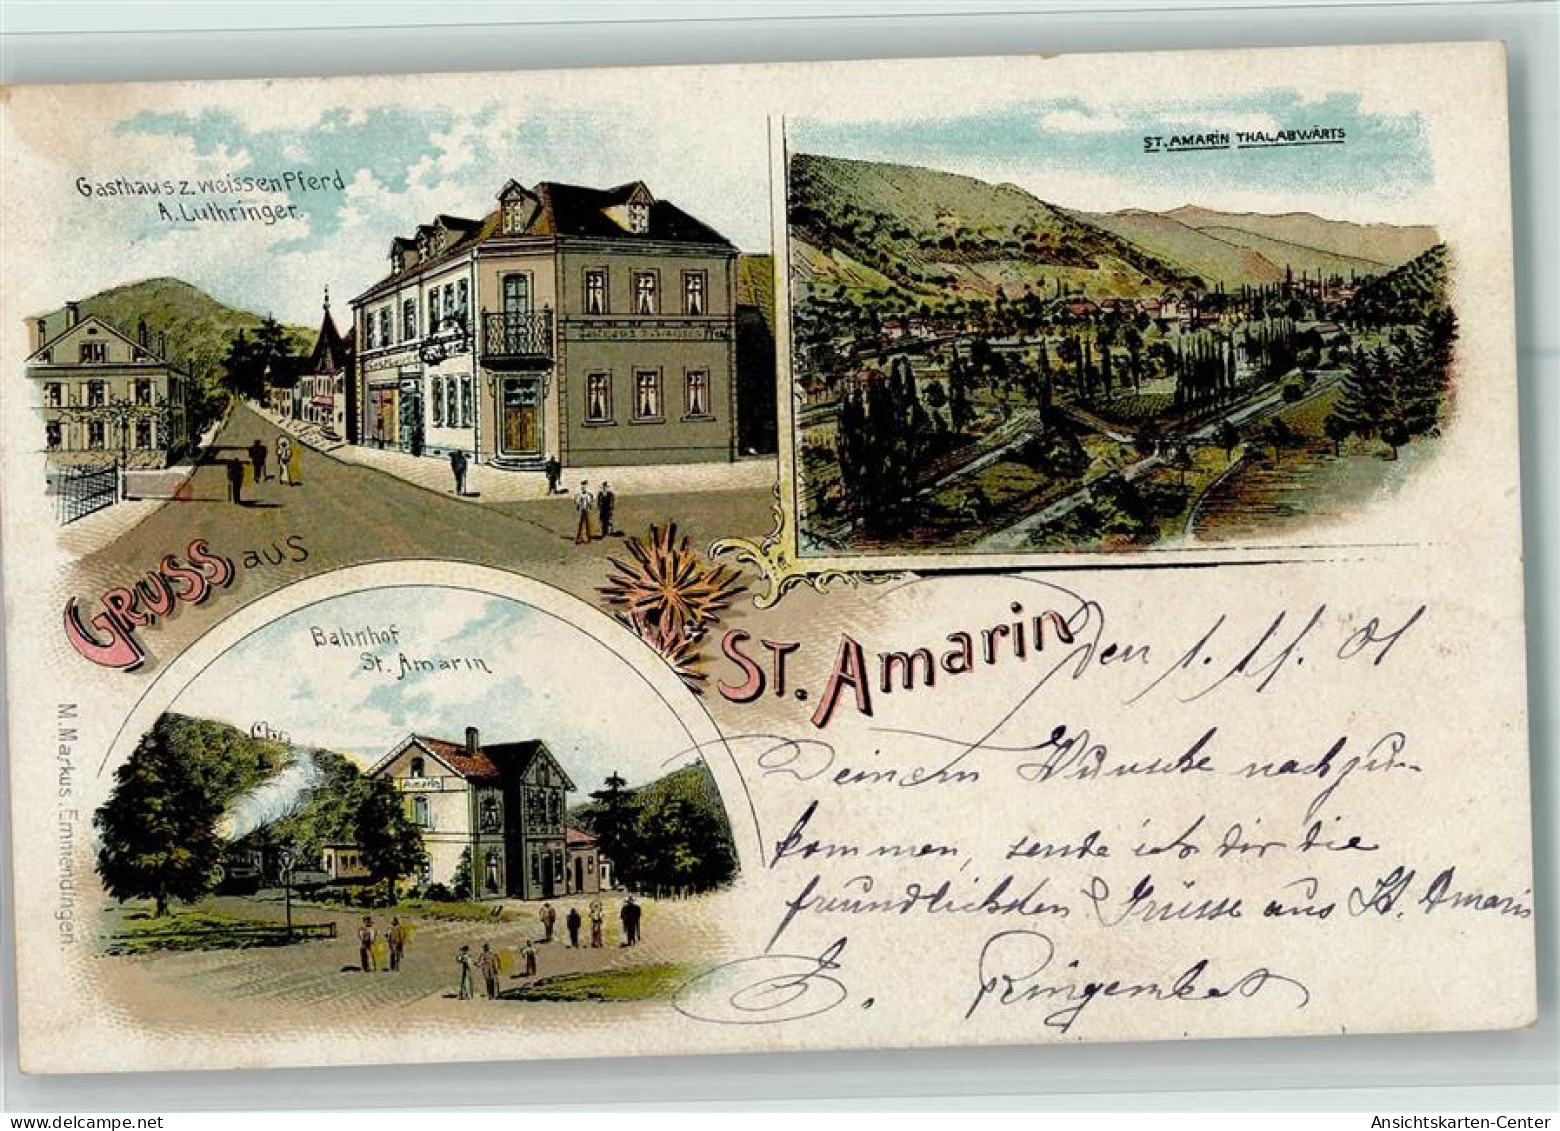 Gasthaus z. weissen Pferd
A. Luthringer.
ST. AMARIN THALABWÄRTS
GRUSS aus
ST. Amarin
Bahnhof
St. Amarin
Amarin
M. Markus, Emmendingen.
Den 1. 11. 01
Deinem Wunsche nachzu-
kommen, sende ich dir die
freundlichsten Grüsse aus St. Amarin
delcampe.net
Ansichtskarten-Center